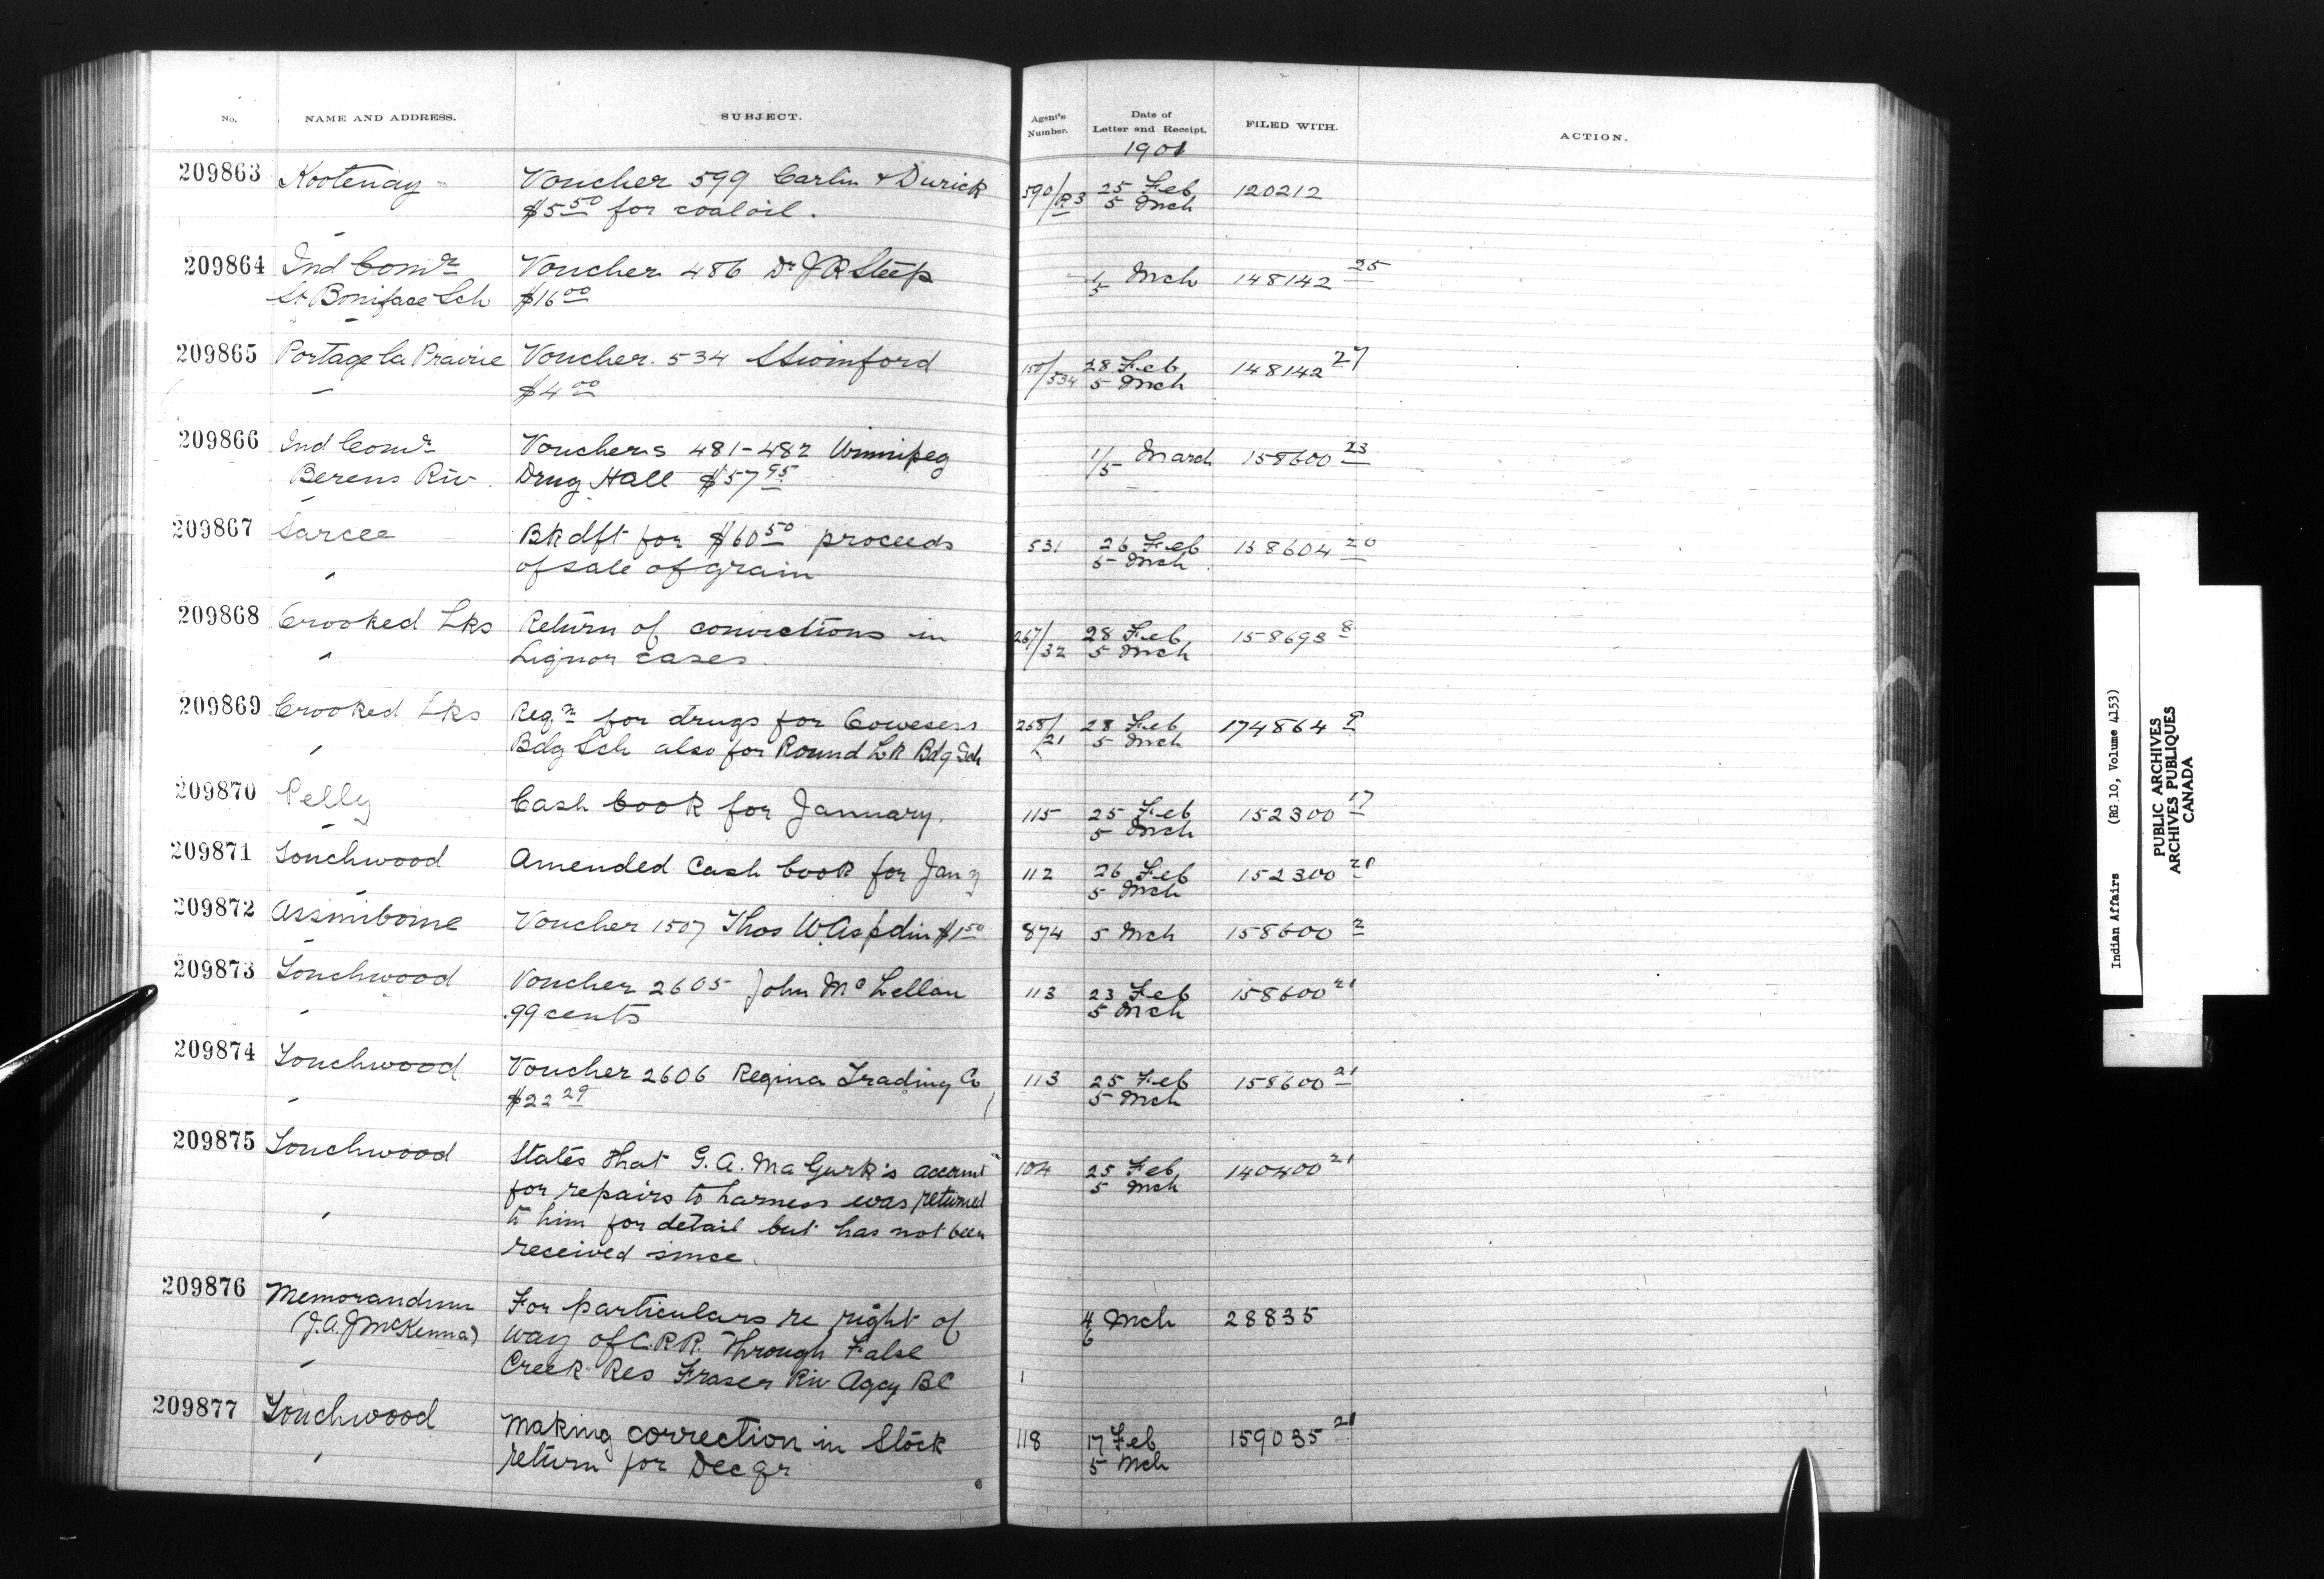 No. NAME AND ADDRESS. SUBJECT. Agent's Number. Date of Letter and Receipt. FILED WITH. ACTION.
1901
209863 Kootenay Voucher 599 Carlin & Durick 590/R3 25 Feb 120212
$5 50 for coal oil. 5 Mch
209864 Ind Comr Voucher 486 Dr J.R Steep 1/5 Mch 148142 25
St Boniface Sch $16 00
209865 Portage la Prairie Voucher 534 S Swinford 150/534 28 Feb 148142 27
" $4 00 5 Mch
209866 Ind Comr Vouchers 481-482 Winnipeg 1/5 March 158600 23
Berens Riv. Drug Hall $57 95
209867 Sarcee Bk dft for $60 50 proceeds 531 26 Feb 158604 20
" of sale of grain 5 Mch
209868 Crooked Lks Return of convictions in 267/32 28 Feb 158693 8
" Liquor cases. 5 Mch
209869 Crooked Lks Reqn for drugs for Cowesess 268/21 28 Feb 174864 9
" Bdg Sch also for Round Lk Bdg Sch 5 Mch
209870 Pelly Cash book for January. 115 25 Feb 152300 17
5 Mch
209871 Touchwood Amended Cash book for Jany 112 26 Feb 152300 21
5 Mch
209872 Assiniboine Voucher 1507 Thos W. Aspdin $1 50 874 5 Mch 158600 2
209873 Touchwood Voucher 2605 John McLellan 113 23 Feb 158600 21
" .99 cents 5 Mch
209874 Touchwood Voucher 2606 Regina Trading Co 113 25 Feb 158600 21
" $22 29 5 Mch
209875 Touchwood States that G.A. MaGurk's account 104 25 Feb 140400 21
for repairs to harness was returned 5 Mch
" to him for detail but has not been
received since.
209876 Memorandum For particulars re right of 4 Mch 28835
(J.A.J McKenna) way of C.P.R. Through False 6
" Creek Res Fraser Riv Agcy BC
209877 Touchwood Making correction in Stock 118 17 Feb 159035 21
" return for Dec qr 5 Mch
Indian Affairs (RG 10, Volume 4153)
PUBLIC ARCHIVES
ARCHIVES PUBLIQUES
CANADA